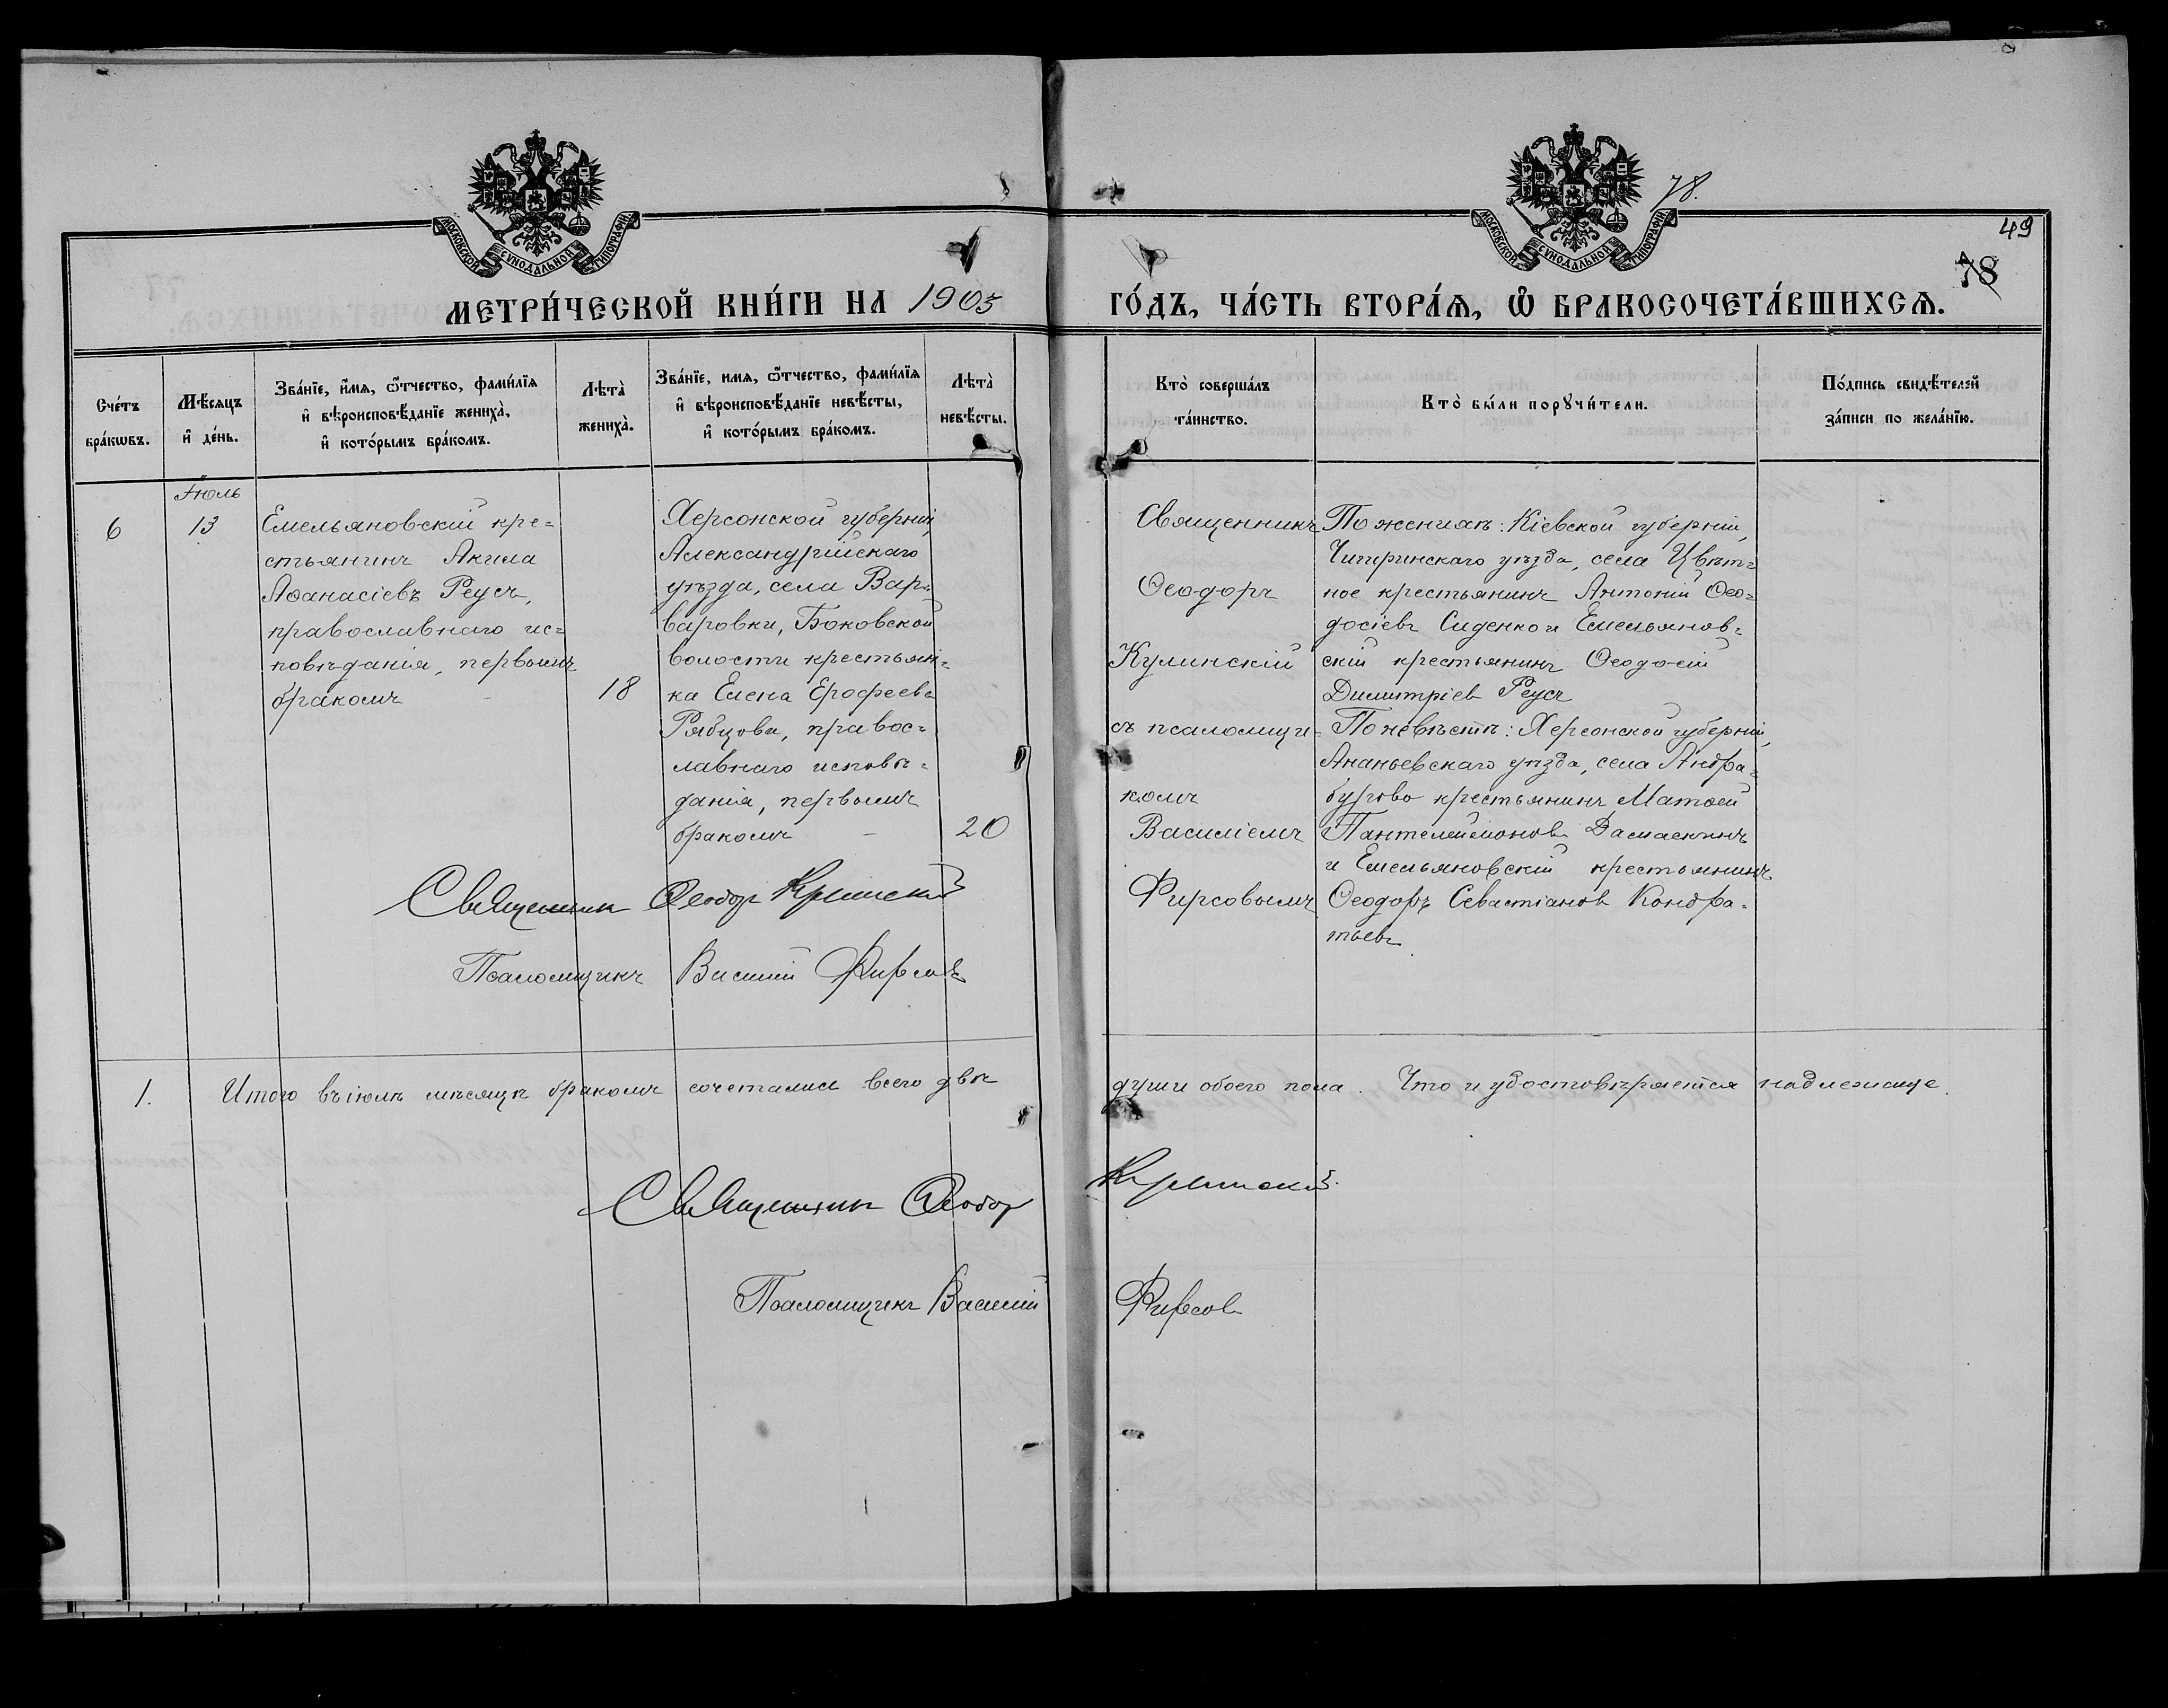 78.
49
78
МОСКОВСКОЙ СУНОДАЛЬНОЙ ТИПОГРАФІИ
МОСКОВСКОЙ СУНОДАЛЬНОЙ ТИПОГРАФІИ
МЕТРИ́ЧЕСКОЙ КНИ́ГИ НА 1903 ГО́ДЪ, ЧА́СТЬ ВТОРА́Ѧ, Ѽ БРАКОСОЧЕТА́ВШИХСѦ.
Сче́тъ
бра́кѡвъ.
Мѣ́сяцъ
и҆ де́нь.
Зва́нїе, и҆́мя, ѻ҆́тчество, фами́лїя
и҆ вѣроисповѣ́данїе жениха̀,
и҆ кото́рымъ бра́комъ.
Лѣта̀
жениха̀.
Зва́нїе, имя, ѻ҆́тчество, фами́лїя
и҆ вѣроисповѣ́данїе невѣ́сты,
и҆ кото́рымъ бра́комъ.
Лѣта̀
невѣ́сты.
Кто̀ соверша́лъ
та́инство.
Кто̀ бы́ли порꙋчи́тели.
По́дпись свидѣ́телей
за́писи по жела́нїю.
6
Іюль
13
Емельяновскій кре=
стьянинъ Акила
Аѳанасіевъ Реусъ,
православнаго ис=
повѣданія, первымъ
бракомъ
18
Херсонской губерніи,
Александрійскаго
уѣзда, села Вар=
варовки, Боковской
волости крестьян=
ка Елена Ерофеева
Рябцова, правос=
лавнаго исповѣ=
данія, первымъ
бракомъ
20
Священникъ
Ѳеодоръ
Кулинскій
съ псаломщи=
комъ
Василіемъ
Фирсовымъ
По женихѣ: Кіевской губерніи,
Чигиринскаго уѣзда, села Цвѣт=
ное крестьянинъ Антоній Ѳео=
досіевъ Сиденко и Емельянов=
скій крестьянинъ Ѳеодосій
Димитріевъ Реусъ
По невѣстѣ: Херсонской губерніи,
Ананьевскаго уѣзда, села Андра=
бурово крестьянинъ Матѳей
Пантелеймоновъ Дамаскинъ
и Емельяновскій крестьянинъ
Ѳеодоръ Севастіановъ Кондра=
тьевъ
Священникъ Ѳеодоръ Кулинскій
Псаломщикъ Василій Фирсовъ
1. Итого въ іюлѣ мѣсяцѣ бракомъ сочетались всего двѣ души обоего пола. Что и удостовѣряется надлежаще.
Священникъ Ѳеодоръ Кулинскій.
Псаломщикъ Василій Фирсовъ